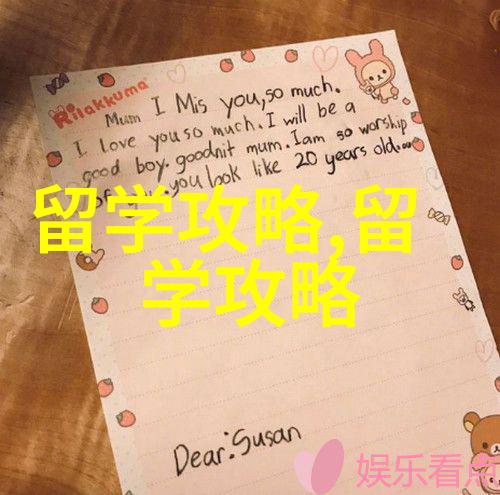 Rilakkuma
Mum I Mis you,so much.
I love you so much. I will be a
good boy. goodnit mum. Iam so worship
you look like 20 years old.
留学攻略,留
学攻略
Dear:Susan
娱乐看点